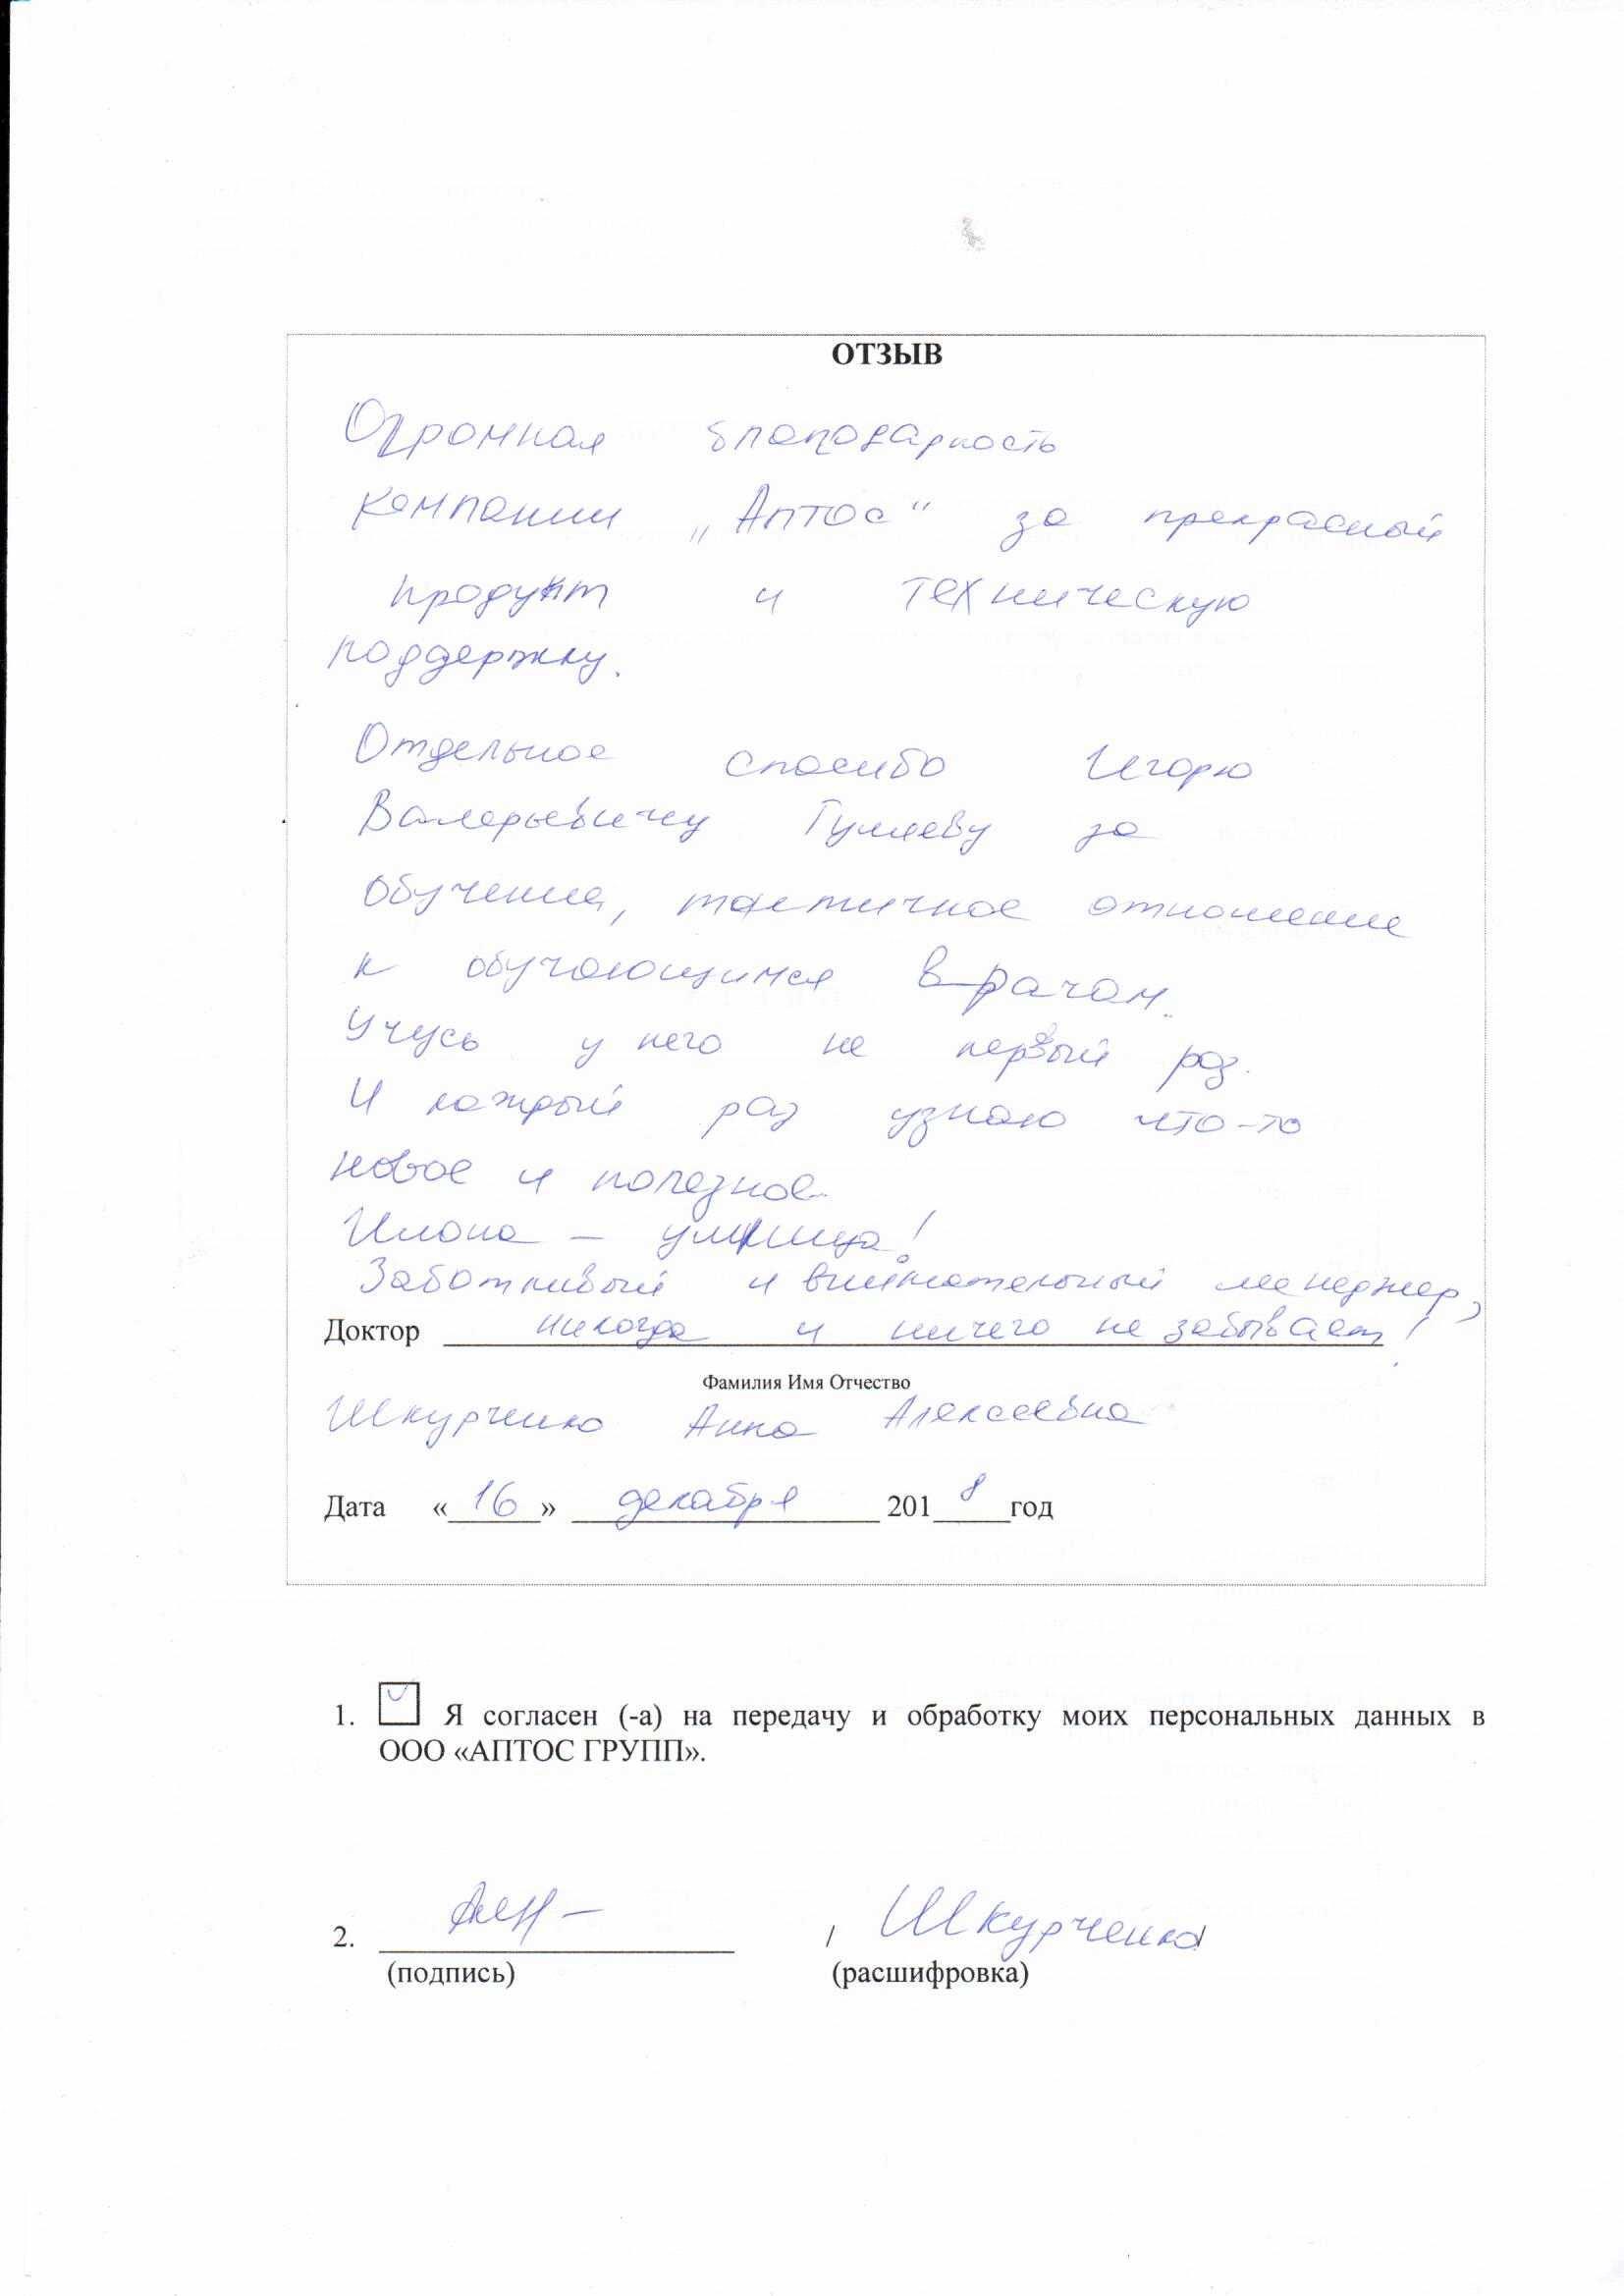 ОТЗЫВ
Огромная благодарность
компании „Аптос“ за прекрасный
продукт и техническую
поддержку.
Отдельное спасибо Игорю
Валерьевичу Гуляеву за
обучение, тактичное отношение
к обучающимся врачам.
Учусь у него не первый раз.
И каждый раз узнаю что-то
новое и полезное.
Илона – умница!
Заботливый и внимательный менеджер,
Доктор никогда и ничего не забывает!
Фамилия Имя Отчество
Шкурченко Анна Алексеевна
Дата «16» декабря 2018 год
1. Я согласен (-а) на передачу и обработку моих персональных данных в
ООО «АПТОС ГРУПП».
2. / Шкурченко/
(подпись) (расшифровка)